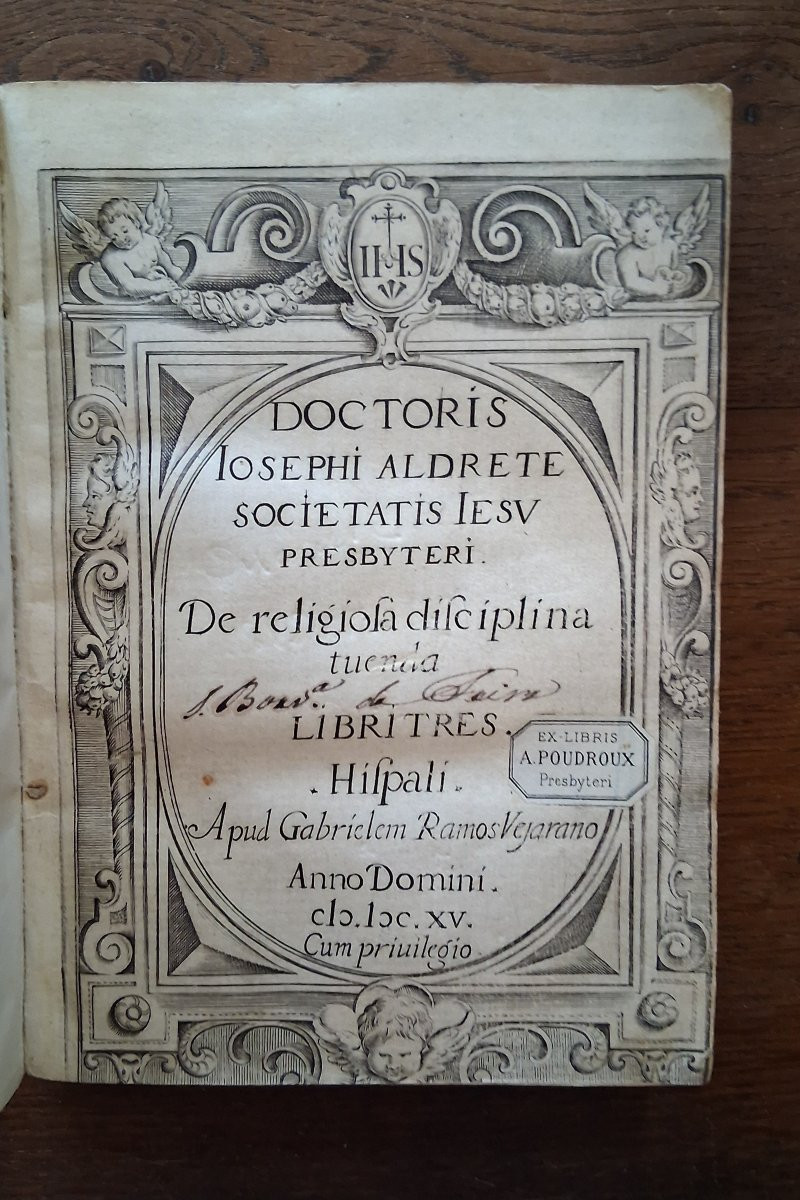 IHS
DOCTORIS
IOSEPHI ALDRETE
SOCIETATIS IESV
PRESBYTERI.
De religiosâ disciplina
tuenda
de
LIBRI TRES.
EX-LIBRIS
A. POUDROUX
Presbyteri
. Hiſpali .
Apud Gabrielem Ramos Vejarano
Anno Domini.
cIɔ.Iɔc.XV.
Cum priuilegio